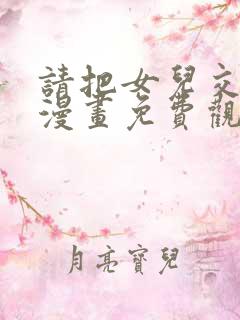 請把女兒交
漫畫免費觀
月亮寶兒